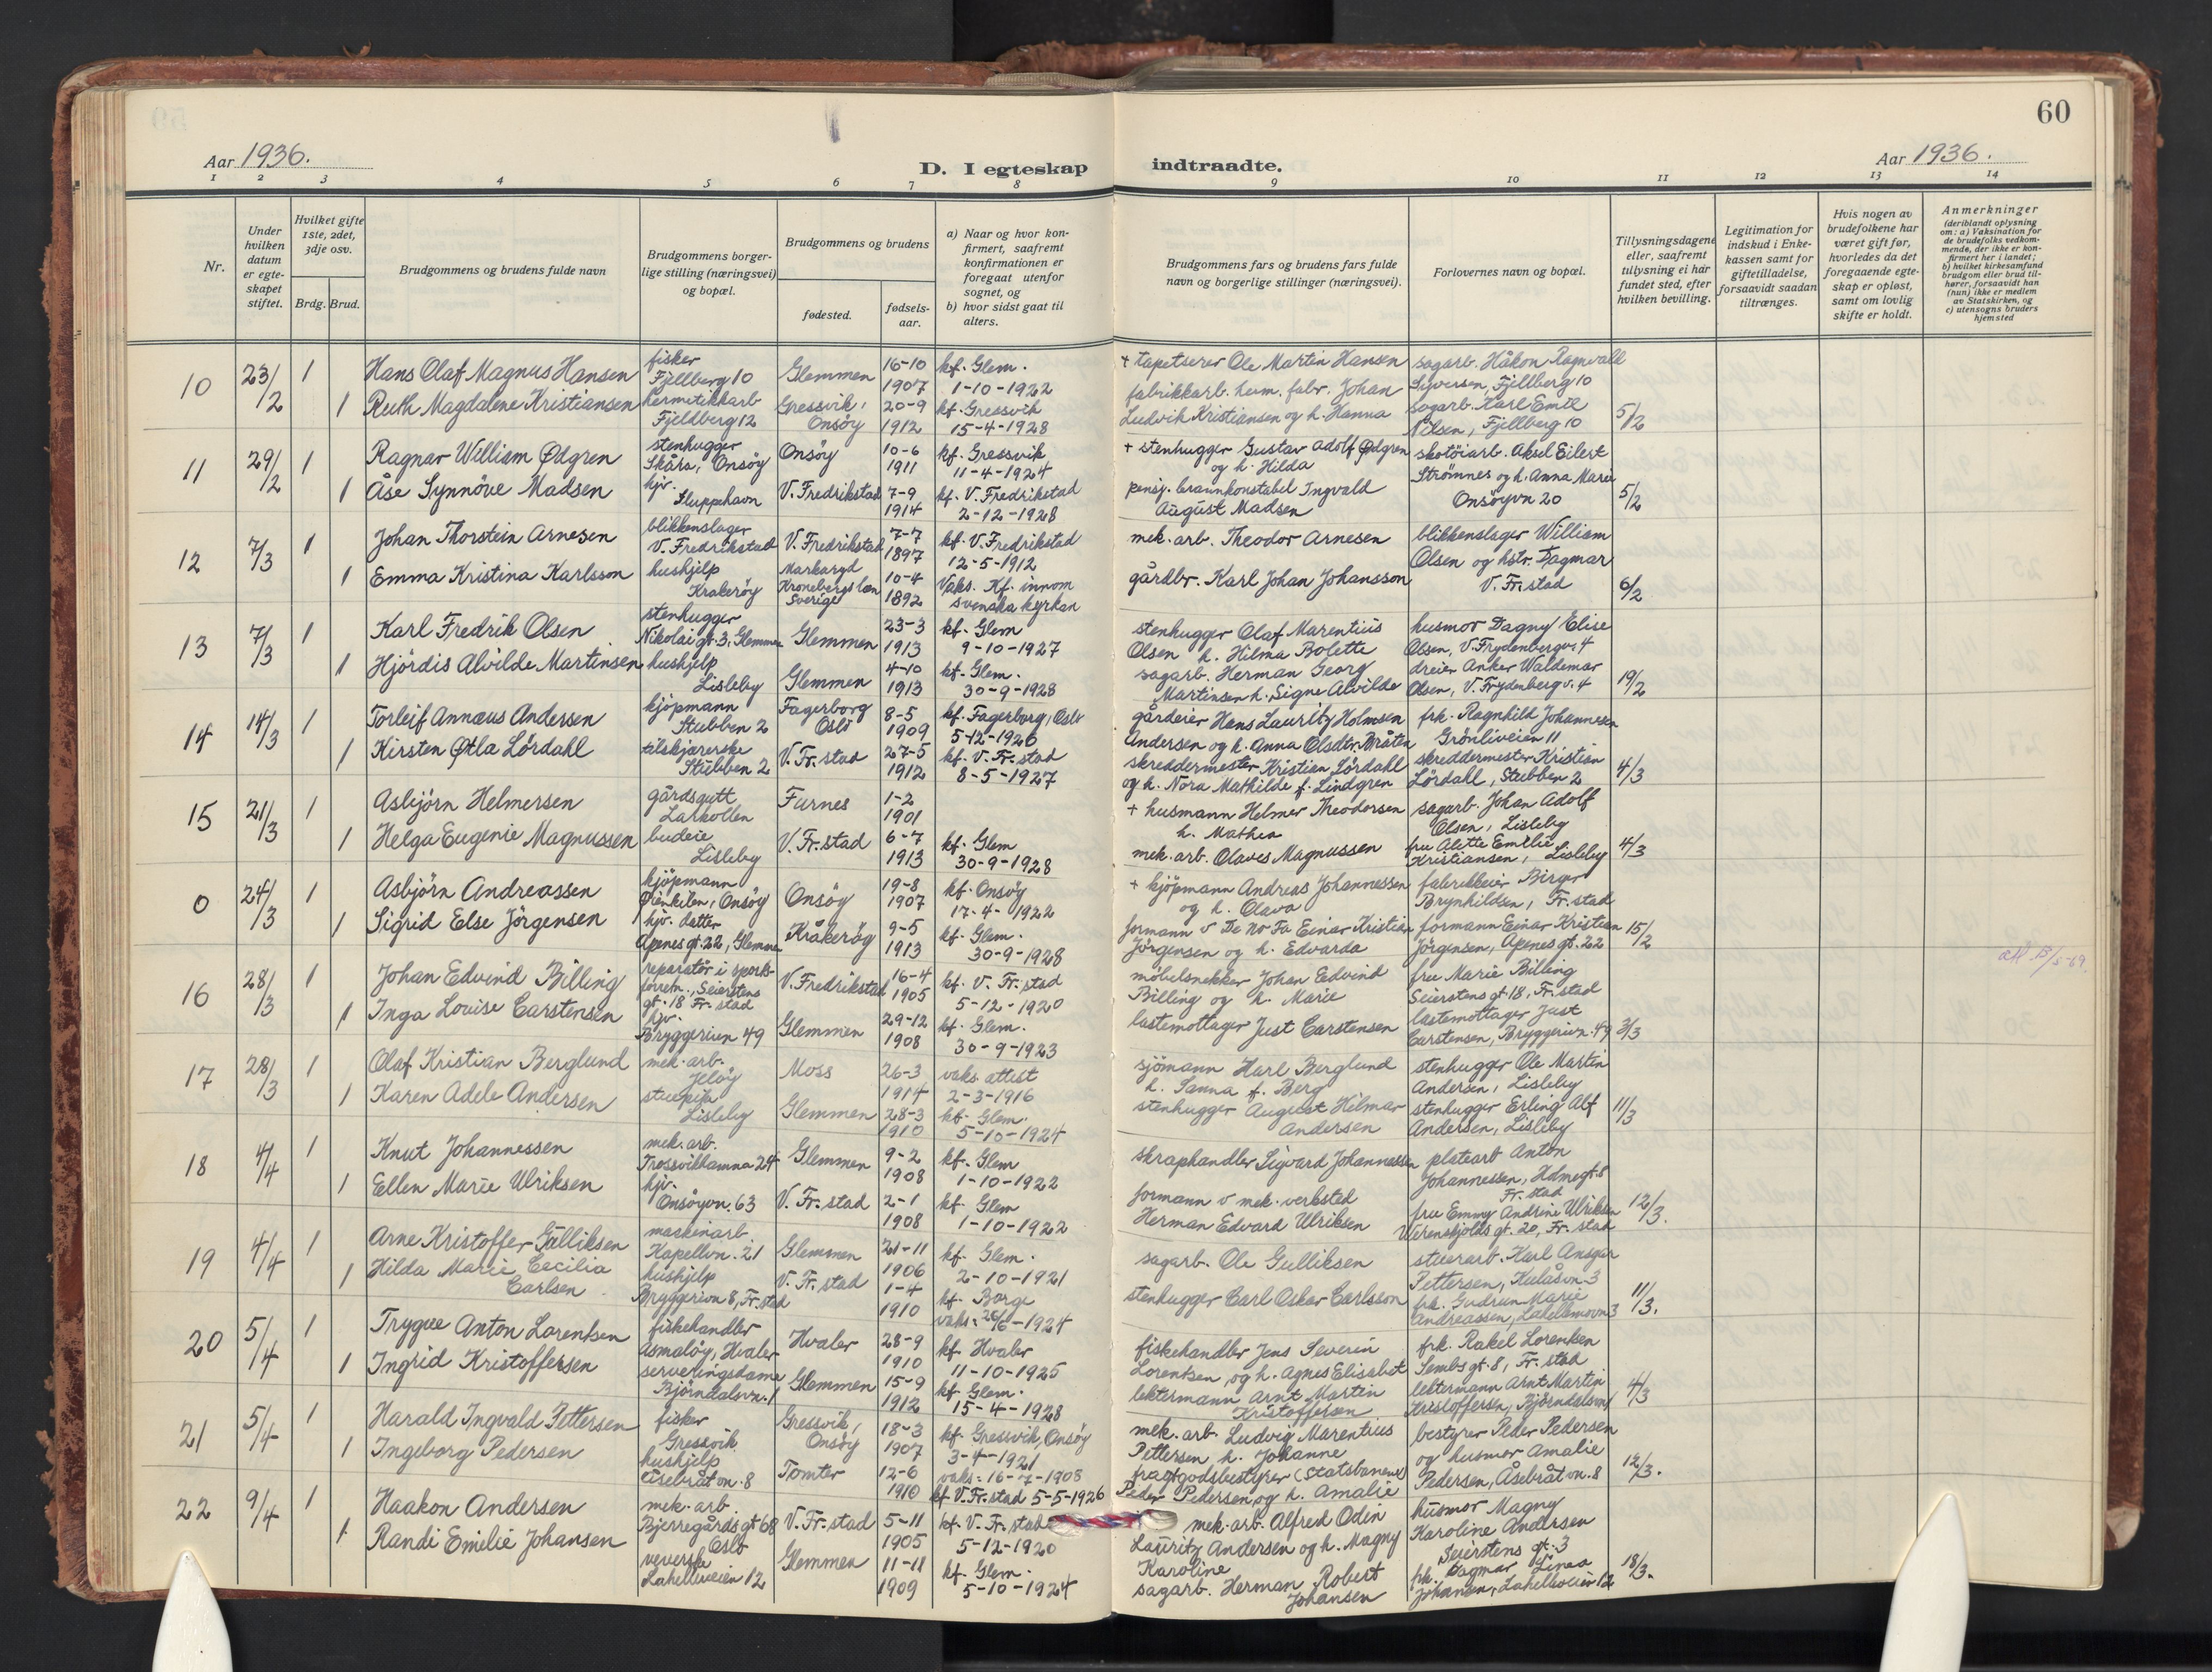 60
Aar 1936.
D. I egteskap indtraadte.
Aar 1936.
1 2 3 4 5 6 7 8 9 10 11 12 13 14
Nr.
Under hvilken datum er egteskapet stiftet.
Hvilket gifte 1ste, 2det, 3dje osv.
Brdg. Brud.
Brudgommens og brudens fulde navn
Brudgommens borgerlige stilling (næringsvei) og bopæl.
Brudgommens og brudens
fødested.
fødselsaar.
a) Naar og hvor konfirmert, saafremt konfirmationen er foregaat utenfor sognet, og
b) hvor sidst gaat til alters.
Brudgommens fars og brudens fars fulde navn og borgerlige stillinger (næringsvei).
Forlovernes navn og bopæl.
Tillysningsdagene eller, saafremt tillysning ei har fundet sted, efter hvilken bevilling.
Legitimation for indskud i Enkekassen samt for giftetilladelse, forsaavidt saadan tiltrænges.
Hvis nogen av brudefolkene har været gift før, hvorledes da det foregaaende egteskap er opløst, samt om lovlig skifte er holdt.
Anmerkninger
(deriblandt oplysning om: a) Vaksination for de brudefolks vedkommende, der ikke er konfirmert her i landet; b) hvilket kirkesamfund brudgom eller brud tilhører, forsaavidt han (hun) ikke er medlem av Statskirken, og c) utensogns bruders hjemsted
10 23/2 1 Hans Olaf Magnus Hansen fisker Fjellberg 10 Glemmen 16-10 1907 kf. Glem. 1-10-1922 + tapetserer Ole Martin Hansen sagarb. Håkon Ragnvald Syversen, Fjellberg 10
1 Ruth Magdalene Kristiansen hermetikkarb Fjeldberg 12 Gressvik, Onsöy 20-9 1912 kf. Gressvik 15-4-1928 fabrikkarb. hum. fabr. Johan Ludvik Kristiansen og h. Hanna sagarb. Karl Emil Nilsen, Fjellberg 10 5/2
11 29/2 1 Ragnar William Ødgren stenhugger Skåra, Onsöy Onsöy 10-6 1911 kf. Gressvik 11-4-1924 + stenhugger Gustav Adolf Ødgren og h. Hilda skotöiarb. Aksel Eilert Strömnes og h. Anna Marie
1 Åse Synnöve Madsen hjv. Sluppehavn V. Fredrikstad 7-9 1914 kf. V. Fredrikstad 2-12-1928 pensj. brannkonstabel Ingvald August Madsen Onsöyvn 20 5/2
12 7/3 1 Johan Thorstein Arnesen blikkenslager V. Fredrikstad V. Fredrikstad 7-7 1897 kf. V. Fredrikstad 12-5-1912 mek. arb. Theodor Arnesen blikkenslager William Olsen og hstr. Dagmar
1 Emma Kristina Karlsson hushjelp Krakeröy Markaryd Kronebergs len Sverige 10-4 1892 Vaks. Kf. innom svenska kyrkan gårdbr. Karl Johan Johansson V. Fr.stad 6/2
13 7/3 1 Karl Fredrik Olsen stenhugger Nikolai gt. 3, Glemmen Glemmen 23-3 1913 kf. Glem 9-10-1927 stenhugger Olaf Marentius Olsen h. Hilma Bolette husmor Dagny Elise Olsen, V. Frydenbergv. 4
1 Hjördis Alvilde Martinsen hushjelp Lisleby Glemmen 4-10 1913 kf. Glem. 30-9-1928 sagarb. Herman Georg Martinsen h. Signe Alvilde dreier Anker Waldemar Olsen, V. Frydenberg v. 4 19/2
14 14/3 1 Torleif Annæus Andersen kjöpmann Stubben 2 Fagerborg Oslo 8-5 1909 kf. Fagerborg, Oslo 5-12-1926 gårdeier Hans Lauritz Holmsen Andersen og h. Anna Olsdtr. Bråten frk. Ragnhild Johannesen Grönliveien 11
1 Kirsten Øtla Lördahl tilskjærerske Stubben 2 V. Fr. stad 27-5 1912 kf. V. Fr. stad 8-5-1927 skreddermester Kristian Lördahl og h. Nora Mathilde f. Lindgren skreddermester Kristian Lördahl, Stubben 2 4/3
15 21/3 1 Asbjörn Helmersen gårdsgutt Larkollen Furnes 1-2 1901 + husmann Helmer Theodorsen h. Mathea sagarb. Johan Adolf Olsen, Lisleby
1 Helga Eugenie Magnussen budeie Lisleby V. Fr. stad 6-7 1913 kf. Glem 30-9-1928 mek. arb. Olaves Magnussen fru Alette Emelie Kristiansen, Lisleby 4/3
0 24/3 1 Asbjörn Andreassen kjöpmann Ørekilen, Onsöy Onsöy 19-8 1907 kf. Onsöy 17-4-1922 + kjöpmann Andreas Johannessen og h. Olava fabrikkeier Birger Brynhildsen, Fr. stad
1 Sigrid Else Jörgensen hjv. datter Apenes gt. 22, Glemmen Kråkeröy 9-5 1913 kf. Glem. 30-9-1928 formann v De No Fa Einar Kristian Jörgensen og h. Edvarda formann Einar Kristian Jörgensen, Apenes gt. 22 15/2
16 28/3 1 Johan Edvind Billing reparatör i sportsforretn., Seierstens gt. 18 Fr. stad V. Fredrikstad 16-4 1905 kf. V. Fr. stad 5-12-1920 möbelsnekker Johan Edvind Billing og h. Marie fru Marie Billing Seierstens gt. 18, Fr. stad
1 Inga Louise Carstensen hjv. Bryggerivn 49 Glemmen 29-12 1908 kf. Glem. 30-9-1923 lastemottager Just Carstensen lastemottager Just Carstensen, Bryggerivn. 49 3/3
17 28/3 1 Olaf Kristian Berglund mek. arb. Jelöy Moss 26-3 1914 vaks. attest 2-3-1916 sjömann Harl Berglund h. Sanna f. Berg stenhugger Ole Martin Andersen, Lisleby
1 Karen Adele Andersen stuepike Lisleby Glemmen 28-3 1910 kf. Glem. 5-10-1924 stenhugger August Hilmar Andersen stenhugger Erling Alf Andersen, Lisleby 11/3
18 4/4 1 Knut Johannessen mek. arb. Trosvikbanna 24 Glemmen 9-2 1908 kf. Glem 1-10-1922 skraphandler Sigvard Johannessen platearb Anton Johannessen, Holmegt. 8 Fr. stad
1 Ellen Marie Ulriksen hjv. Onsöyvn. 63 V. Fr. stad 2-1 1908 kf. Glem 1-10-1922 formann v mek. verksted Herman Edvard Ulriksen fru Emmy Andrine Ulriksen Werenskjolds gt. 20, Fr. stad 12/3.
19 4/4 1 Arne Kristoffer Gulliksen maskinarb. Kapellvn. 21 Glemmen 21-11 1906 kf. Glem. 2-10-1921 sagarb. Ole Gulliksen stuerarb. Karl Ansgar Pettersen, Kulåsvn 3
1 Hilda Marie Cecilia Carlsen hushjelp Bryggerivn 8, Fr. stad V. Fr. stad 1-4 1910 kf. Borge vaks: 26/6-1924 stenhugger Carl Oskar Carlsson frk. Gudrun Marie Andreassen, Lahellmovn 3 11/3.
20 5/4 1 Trygve Anton Lorentsen fiskehandler Asmalöy, Hvaler Hvaler 28-9 1910 kf. Hvaler 11-10-1925 fiskehandler Jens Severin Lorentsen, og h. Agnes Elisabet frk. Rakel Lorentsen Sembs gt. 8, Fr. stad
1 Ingrid Kristoffersen serveringsdame Björndalsvn. 1 Glemmen 15-9 1912 kf. Glem. 15-4-1928 lektermann Arnt Martin Kristoffersen lektermann Arnt Martin Kristoffersen, Björndalsvn 1 4/3
21 5/4 1 Harald Ingvald Pettersen fisker Gressvik Gressvik, Onsöy 18-3 1907 kf. Gressvik, Onsöy 3-4-1921 mek. arb. Ludvig Marentius Pettersen h. Johanne bestyrer Peder Pedersen og husmor Amalie
1 Ingeborg Pedersen hushjelp Åsebråtvn. 8 Tomter 12-6 1910 vaks: 16-7-1908 kf. V. Fr. stad 5-5-1926 fragtgodsbestyrer (statsbanene) Peder Pedersen, og h. Amalie Pedersen, Åsebråtvn. 8 12/3.
22 9/4 1 Haakon Andersen mek. arb. Bjerregårds gt 68 Oslo V. Fr. stad 5-11 1905 kf. V. Fr. stad 5-12-1920 mek. arb. Alfred Odin Lauritz Andersen og h. Magny Karoline husmor Magny Karoline Andersen Seierstens gt. 3
1 Randi Emilie Johansen veverske Lahelleveien 12 Glemmen 11-11 1909 kf. Glem. 5-10-1924 sagarb. Herman Robert Johansen frk. Dagmar Linea Johansen, Lahelleveien 12 18/3.